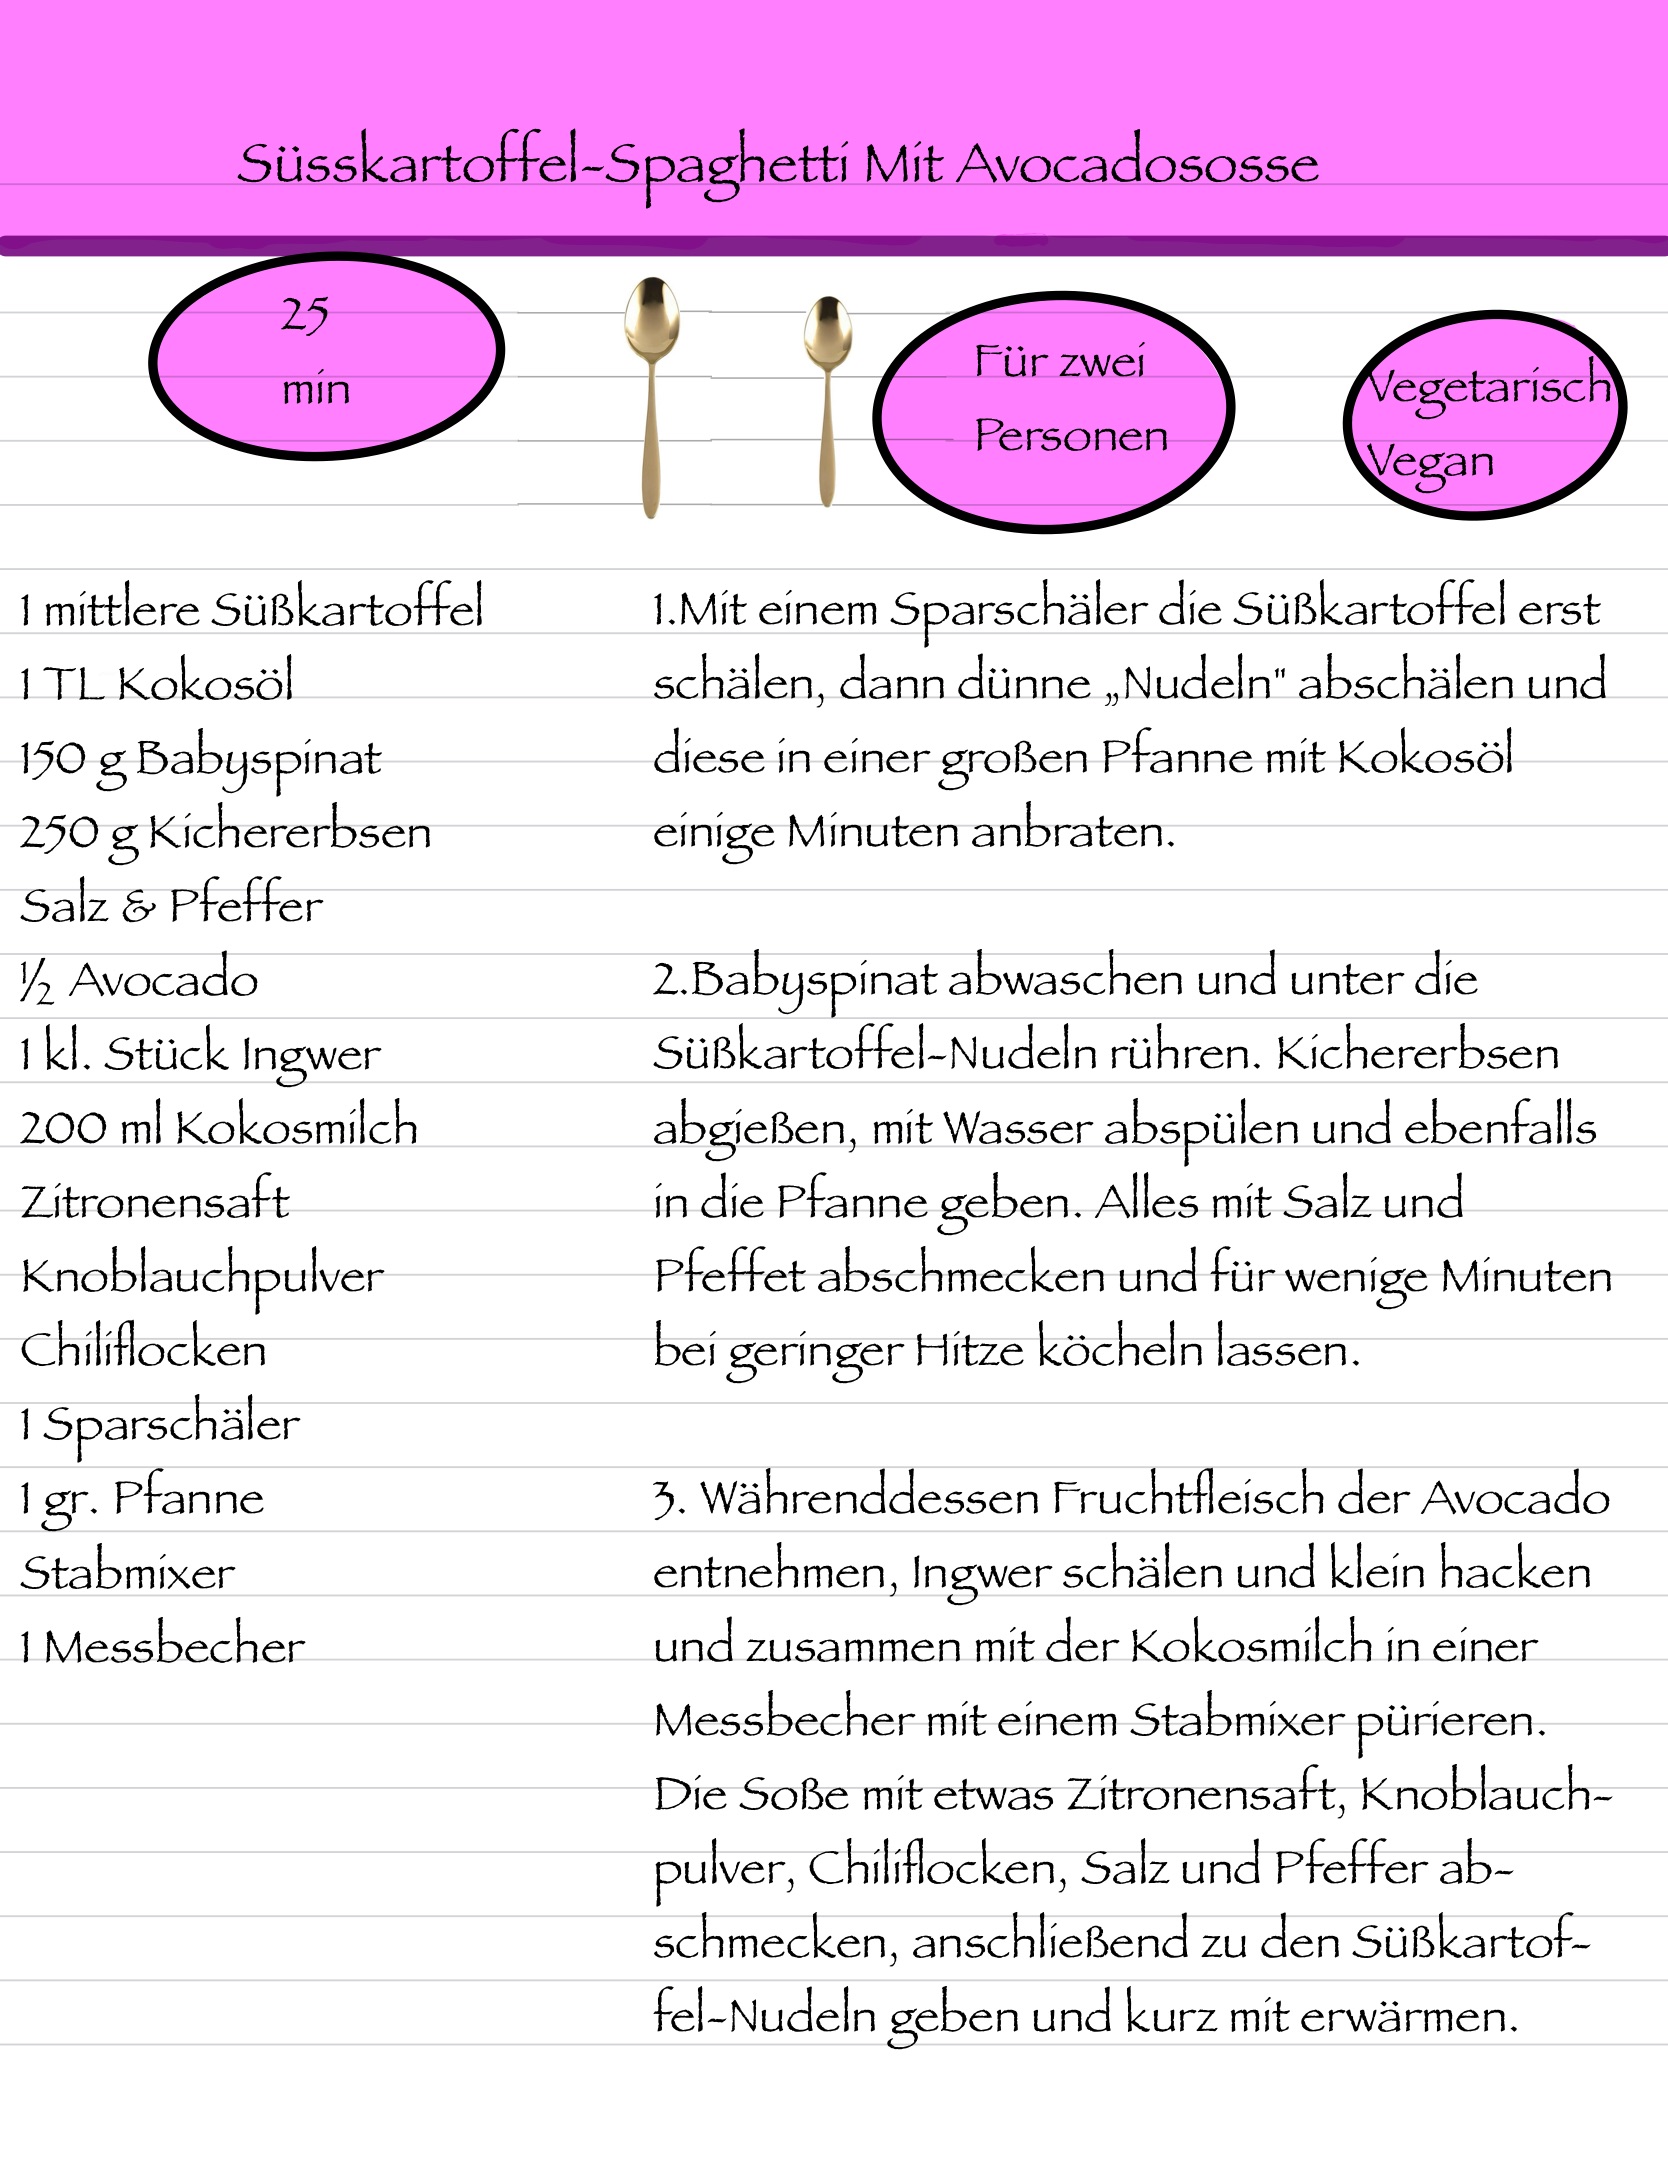 Süsskartoffel-Spaghetti Mit Avocadososse
25
min
Für zwei
Personen
Vegetarisch
Vegan
1 mittlere Süßkartoffel
1 TL Kokosöl
150 g Babyspinat
250 g Kichererbsen
Salz & Pfeffer
½ Avocado
1 kl. Stück Ingwer
200 ml Kokosmilch
Zitronensaft
Knoblauchpulver
Chiliflocken
1 Sparschäler
1 gr. Pfanne
Stabmixer
1 Messbecher
1.Mit einem Sparschäler die Süßkartoffel erst
schälen, dann dünne „Nudeln" abschälen und
diese in einer großen Pfanne mit Kokosöl
einige Minuten anbraten.
2.Babyspinat abwaschen und unter die
Süßkartoffel-Nudeln rühren. Kichererbsen
abgießen, mit Wasser abspülen und ebenfalls
in die Pfanne geben. Alles mit Salz und
Pfeffet abschmecken und für wenige Minuten
bei geringer Hitze köcheln lassen.
3. Währenddessen Fruchtfleisch der Avocado
entnehmen, Ingwer schälen und klein hacken
und zusammen mit der Kokosmilch in einer
Messbecher mit einem Stabmixer pürieren.
Die Soße mit etwas Zitronensaft, Knoblauch-
pulver, Chiliflocken, Salz und Pfeffer ab-
schmecken, anschließend zu den Süßkartof-
fel-Nudeln geben und kurz mit erwärmen.